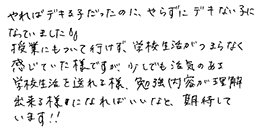 やればデキる子だったのに、やらずにデキない子に
なっていました!!
授業にもついて行けず、学校生活がつまらなく
感じていた様ですが、少しでも活気のある
学校生活を送れる様、勉強内容が理解
出来る様になればいいなと、期待して
います!!